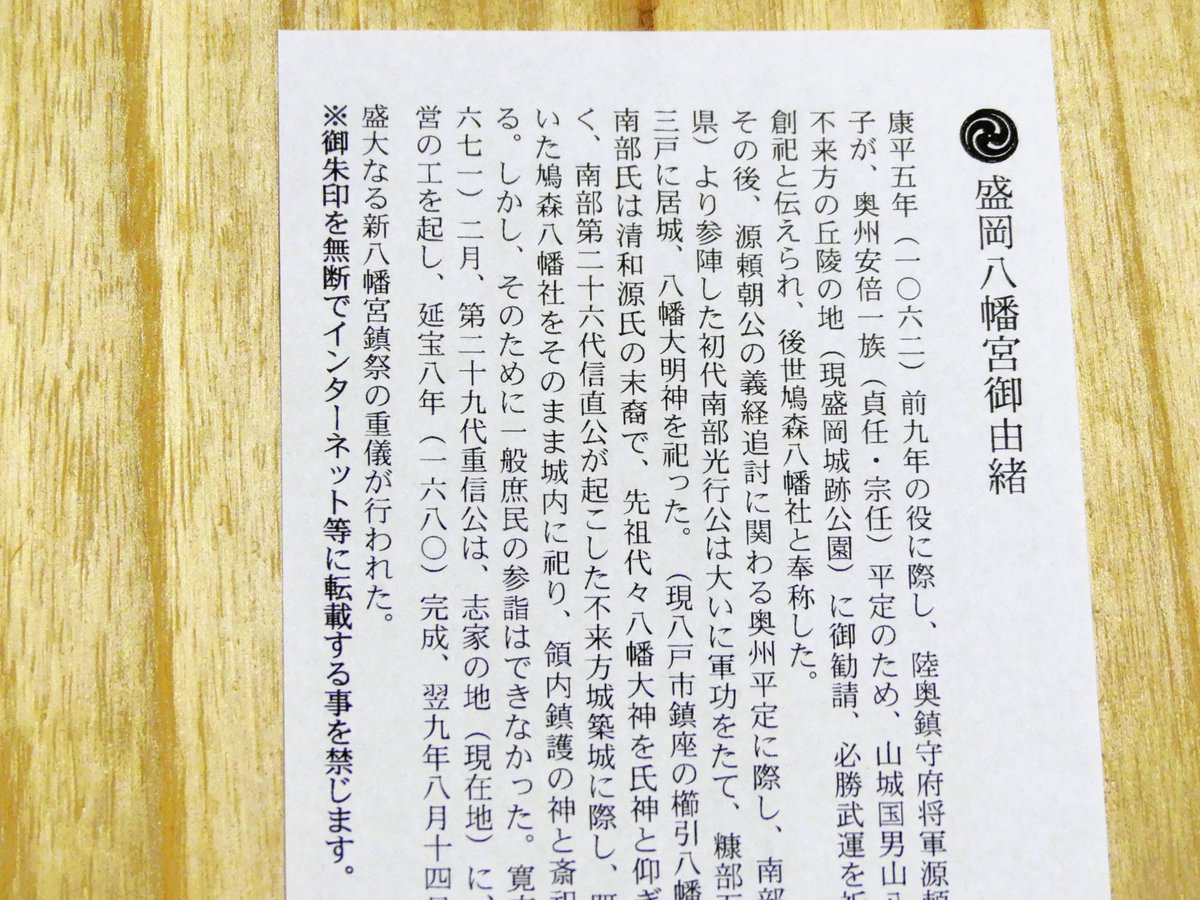 盛岡八幡宮御由緒
康平五年（一〇六二）前九年の役に際し、陸奥鎮守府将軍源頼
子が、奥州安倍一族（貞任・宗任）平定のため、山城国男山八
不来方の丘陵の地（現盛岡城跡公園）に御勧請、必勝武運を祈
創祀と伝えられ、後世鳩森八幡社と奉称した。
その後、源頼朝公の義経追討に関わる奥州平定に際し、南部
県）より参陣した初代南部光行公は大いに軍功をたて、糠部五
三戸に居城、八幡大明神を祀った。（現八戸市鎮座の櫛引八幡
南部氏は清和源氏の末裔で、先祖代々八幡大神を氏神と仰ぎ
く、南部第二十六代信直公が起こした不来方城築城に際し、既
いた鳩森八幡社をそのまま城内に祀り、領内鎮護の神と斎祀
る。しかし、そのために一般庶民の参詣はできなかった。寛文
六七一）二月、第二十九代重信公は、志家の地（現在地）に、
営の工を起し、延宝八年（一六八〇）完成、翌九年八月十四日
盛大なる新八幡宮鎮祭の重儀が行われた。
※御朱印を無断でインターネット等に転載する事を禁じます。